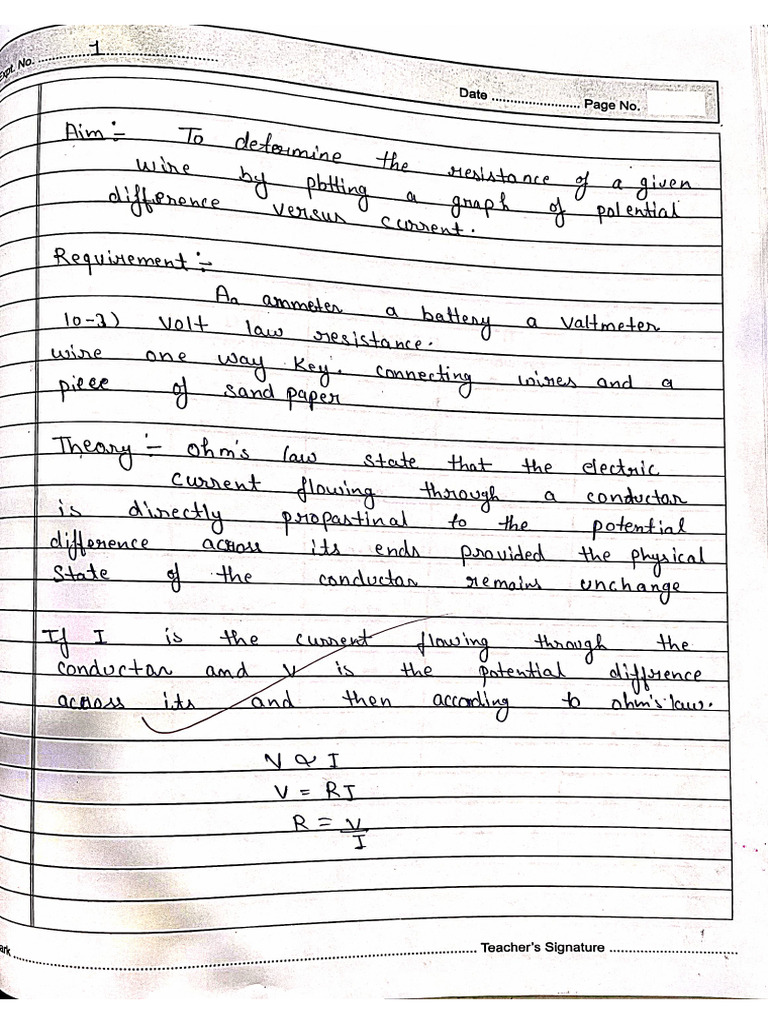 Expt. No. 1
Date
Page No.
Aim :- To determine the resistance of a given
wire by plotting a graph of potential
difference versus current.
Requirement :-
An ammeter a battery a valtmeter
10-3) volt law resistance.
wire one way key. connecting wires and a
piece of sand paper
Theory :- ohm's law state that the electric
current flowing through a conductar
is directly propastinal to the potential
difference across its ends provided the physical
state of the conductar remains unchange
If I is the current flowing through the
conductar and v is the potential difference
across its and then according to ohm's law.
V ∝ I
V = RI
R = V/I
ark
Teacher's Signature